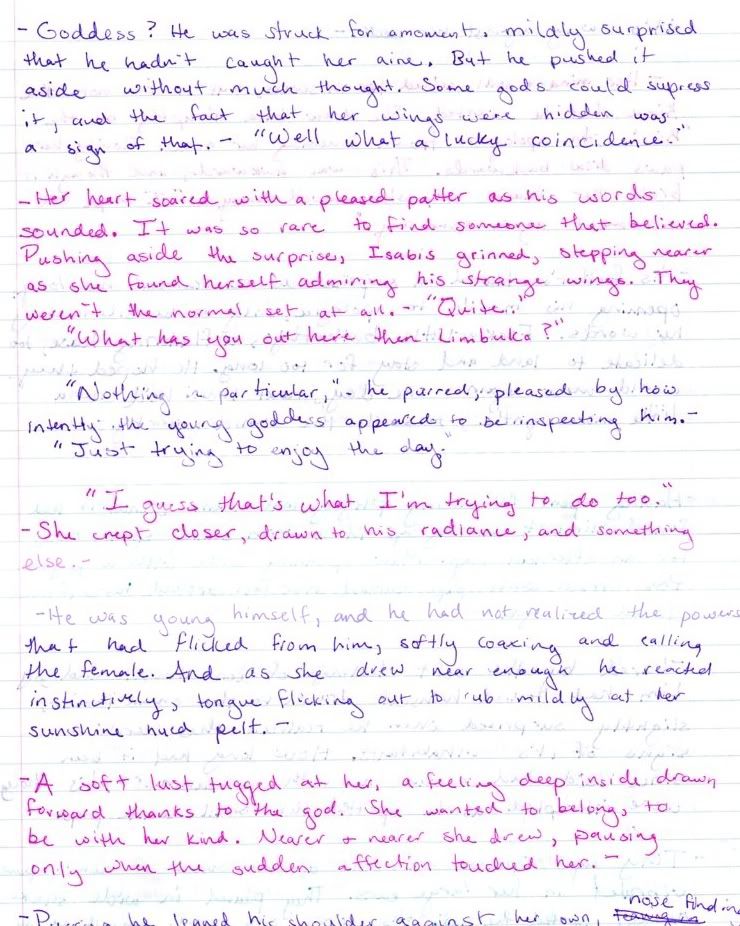 - Goddess? He was struck for amoment, mildly surprised
that he hadn't caught her aire. But he pushed it
aside without much thought. Some gods could supress
it, and the fact that her wings were hidden was
a sign of that. - "Well what a lucky coincidence."
- Her heart soared with a pleased patter as his words
sounded. It was so rare to find someone that believed.
Pushing aside the surprise, Isabis grinned, stepping nearer
as she found herself admiring his strange wings. They
weren't the normal set at all. - "Quite."
"What has you out here then Limbuko?"
"Nothing in particular," - he purred, pleased by how
intently the young goddess appeared to be inspecting him. -
"Just trying to enjoy the day."
"I guess that's what I'm trying to do too."
- She crept closer, drawn to his radiance, and something
else. -
- He was young himself, and he had not realized the powers
that had flicked from him, softly coaxing and calling
the female. And as she drew near enough he reacted
instinctively, tongue flicking out to rub mildly at her
sunshine hued pelt. -
- A soft lust tugged at her, a feeling deep inside drawn
forward thanks to the god. She wanted to belong, to
be with her kind. Nearer + nearer she drew, pausing
only when the sudden affection touched her. -
nose finding
- Purring he leaned his shoulder against her own,